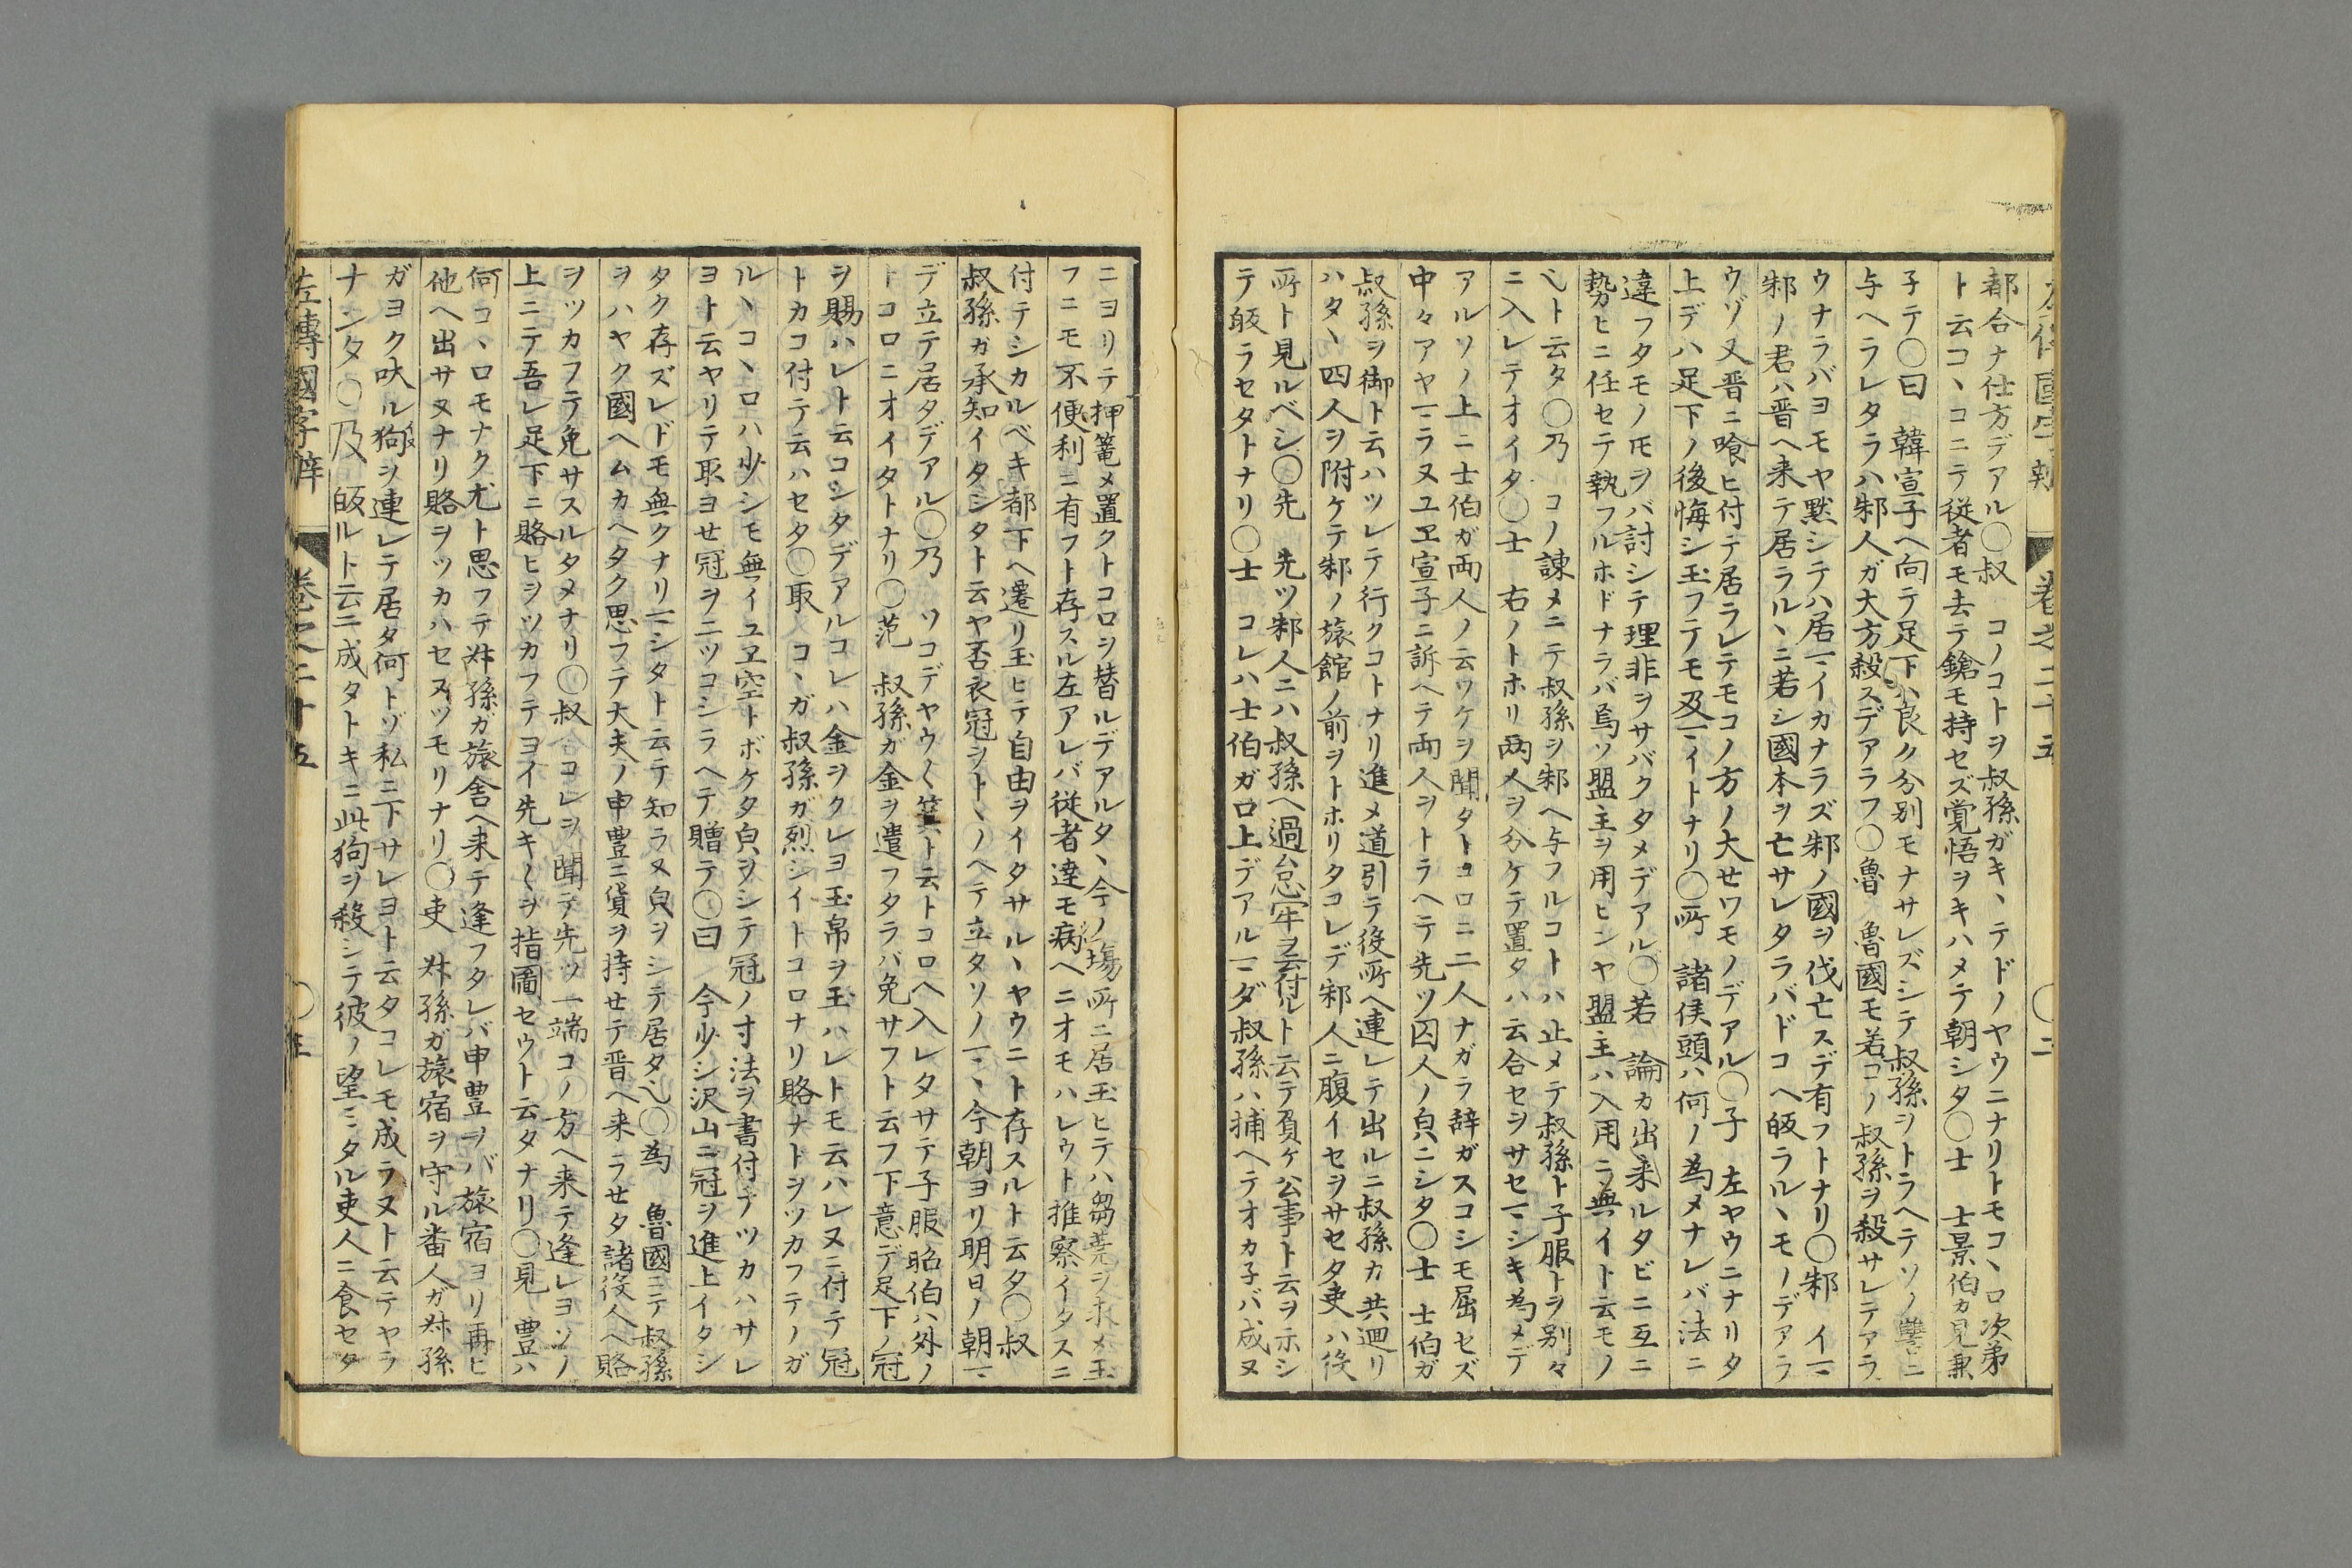 都合ナ仕方デアル〇叔　コノコトヲ叔孫ガキヽテドノヤウニナリトモコヽロ次第
ト云コヽコニテ従者モ去テ鎗モ持セズ覚悟ヲキハメテ朝シタ〇士　士景伯カ見兼
子テ〇曰　韓宣子へ向テ足下ハ良ク分別モナサレズシテ叔孫ヲトラヘテソノ讐ニ
与ヘラレタラハ邾人ガ大方殺スデアラフ〇魯　魯國モ若コノ叔孫ヲ殺サレテアラ
ウナラバヨモヤ黙シテハ居マイカナラズ邾ノ國ヲ伐亡スデ有フトナリ〇邾　イマ
邾ノ君ハ晋ヘ来テ居ラルヽニ若シ國本ヲ亡サレタラバドコヘ皈ラルヽモノデアラ
ウゾ又晋ニ喰ヒ付テ居ラレテモコノ方ノ大セワモノデアル〇子　左ヤウニナリタ
上デハ足下ノ後悔シ玉フテモ及マイトナリ〇所　諸侯頭ハ何ノ為メナレバ法ニ
違フタモノヲバ討シテ理非ヲサバクタメデアル〇若　論カ出来ルタビニ互ニ
勢ヒニ任セテ執フルホドナラバ烏ソ盟主ヲ用ヒンヤ盟主ハ入用ニ無イト云モノ
ベト云タ〇乃　コノ諫メニテ叔孫ヲ邾ヘ与フルコトハ止メテ叔孫ト子服トヲ別々
ニ入レテオイタ〇士　右ノトホリ両人ヲ分ケテ置タハ云合セヲサセマシキ為メデ
アルソノ上ニ士伯ガ両人ノ云ワケヲ聞タトコロニ二人ナガラ辞ガスコシモ屈セズ
中々アヤマラヌユヱ宣子ニ訴ヘテ両人ヲトラヘテ先ツ囚人ノ㒵ニシタ〇士　士伯ガ
叔孫ヲ御ト云ハツレテ行クコトナリ進メ道引テ役所ヘ連レテ出ルニ叔孫カ共廻リ
ハタヽ四人ヲ附ケテ邾ノ旅館ノ前ヲトホリタコレデ邾人ニ腹イセヲサセタ吏ハ役
所ト見ルベシ〇先　先ツ邾人ニハ叔孫ヘ過怠牢ヲ云付ルト云テ負ケ公事ト云ヲ示シ
テ皈ラセタトナリ〇士　コレハ士伯ガロ上デアルマダ叔孫ハ捕ヘテオカ子バ成ヌ
ニヨリテ押篭メ置クトコロヲ替ルデアルタヽ今ノ塲所ニ居玉ヒテハ芻蕘ヲ求メ玉
フニモ不便利ニ有フト存スル左アレバ従者達モ病ヘニオモハレウト推察イタスニ
付テシカルベキ都下ヘ遷リ玉ヒテ自由ヲイタサルヽヤウニト存スルト云タ〇叔
叔孫ガ承知イタシタト云ヤ否衣冠ヲトヽノヘテ立タソノマヽ今朝ヨリ明日ノ朝マ
デ立テ居タデアル〇乃　ソコデヤウ〱箕ト云トコロヘ入レタサテ子服昭伯ハ外ノ
トコロニオイタトナリ〇范　叔孫ガ金ヲ遣フタラバ免サフト云フ下意デ足下ノ冠
ヲ賜ハレト云コシタデアルコレハ金ヲクレヨ玉帛ヲ玉ハレトモ云ハレヌニ付テ冠
トカコ付テ云ハセタ〇取　コヽガ叔孫ガ烈シイトコロナリ賂ナトヲツカフテノガ
ルヽコヽロハ少シモ無イユヱ空トボケタ㒵ヲシテ冠ノ寸法ヲ書付テツカハサレ
ヨト云ヤリテ取ヨせ冠ヲ二ツコシラヘテ贈テ〇曰　今少シ沢山ニ冠ヲ進上イタシ
タク存ズレドモ無クナリマシタト云テ知ラヌ㒵ヲシテ居タ〇為　魯國ニテ叔孫
ヲハヤク國ヘムカヘタク思フテ大夫ノ申豊ニ貨ヲ持せテ晋ヘ来ラせタ諸役人ヘ賂
ヲツカフテ免サスルタメナリ〇叔　コレヲ聞テ先ツ一端コノ方ヘ来テ逢レヨソノ
上ニテ吾レ足下ニ賂ヒヲツカフテヨイ先キ〱ヲ指圖セウト云タナリ〇見　豊ハ
何コヽロモナク尤ト思フテ叔孫ガ旅舎ヘ来テ逢フタレバ申豊ヲバ旅宿ヨリ再ヒ
他ヘ出サヌナリ賂ヲツカハセヌツモリナリ〇吏　叔孫ガ旅宿ヲ守ル番人ガ叔孫
ガヨク吠ル狗ヲ連レテ居タ何トゾ私ニ下サレヨト云タコレモ成ラヌト云テヤラ
ナンタ〇及　皈ルト云ニ成タトキニ此狗ヲ殺シテ彼ノ望ミタル吏人ニ食セタ
左傳國字辯　巻之二十五